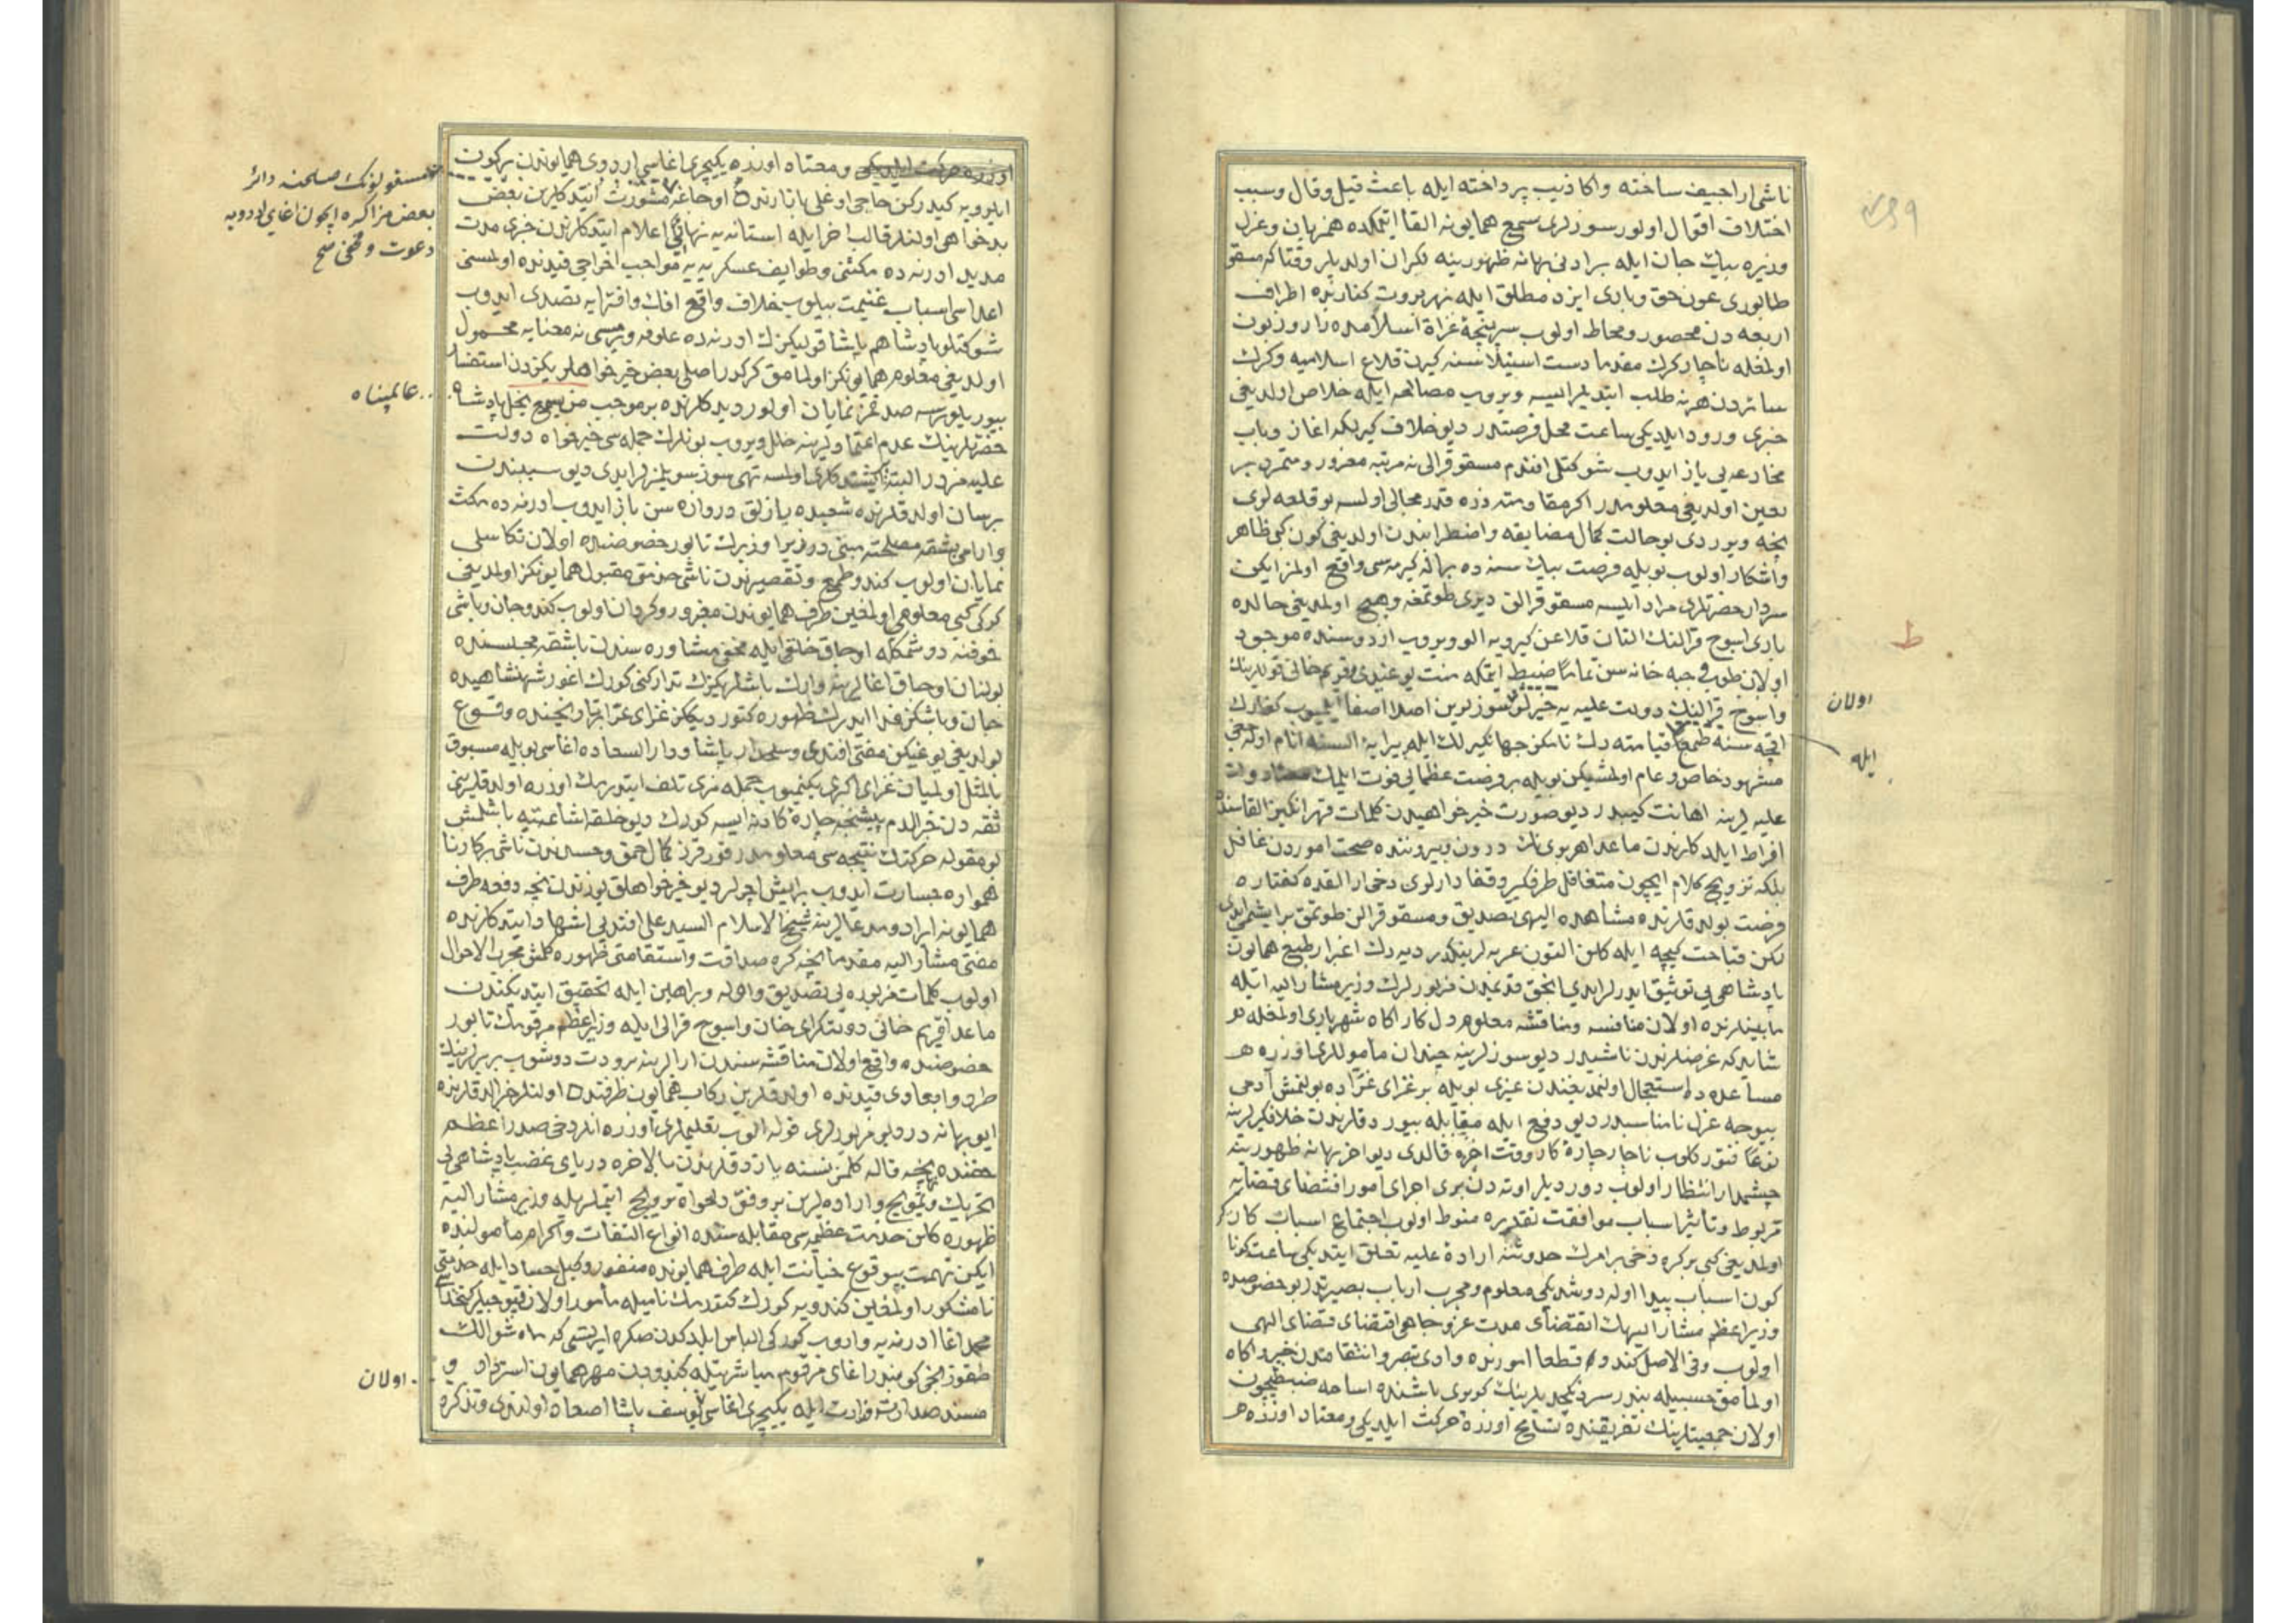 ناشی اراجیف ساخته واکاذیب پرداخته ایله باعث قیل وقال وسبب
اختلاف اقوال اولور سوزلری سمع همایونه القا ایتمکده همزبان وعزل
وزیره بیك جان ایله برادنی بهانه ظهورینه نکران اولدیلر وقتاکه مسقو
طابوری عون حق ویاری ایزد مطلق ایله نهر پروت کنارنده اطراف
اربعه دن محصور ومحاط اولوب سرپنجۀ غزاة اسلامده زار وزبون
اولمغله ناچار کرك مقدما دست استیلاسنه کیرن قلاع اسلامیه وکرك
سائردن هر نه طلب ایتدیلر ایسه ویروب مصالحه ایله خلاص اولدیغی
خبری ورود ایلدیکی ساعت محل فرصتدر دیو خلاف کیرلکه اغاز وباب
مخادعه یی باز ایدوب شوکتلی افندم مسقو قرالی نه مرتبه مغرور ومتمرد بر
لعین اولدیغی معلومدر اکر مقاومته ذره قدر مجالی اولسه بو قلعه لری
نیجه ویرردی بو حالت کمال مضایقه واضطرابندن اولدیغی کون کبی ظاهر
واشکار اولوب بویله فرصت بیك سنه ده بر اله کیرمه سی واقع اولمز ایکن
سردار حضرتلری مراد ایلسه مسقو قرالن دیری طوتمغه وهیچ اولمدیغی حالده
باری اسوج قرالنك النان قلاعن کیرویه الو ویروب اردوسنده موجود
اولان طوپ وجبه خانه سن تماما ضبط ایتمکه منت یوغیدی قریم خانی قوللرینك
واسوج قرالینك دولت علیه یه خیرلو سوزلرین اصلا اصغا ایتمیوب کفارك
اولان
اقچه سنه طمعا قیامته دك نامکز جهانکیرلك ایله پیرایۀ السنه انام اوله جغی
ایله
مشهود خاص وعام اولمشیکن بویله بر فرصت عظمایی فوت ایلمك
علیه لرینه اهانت کیبدر دیو صورت خیرخواهیدن کلمات قهر انکیز القاسنده
افراط ایلدکلرندن ماعدا هر بوی نك درون وبیروننده صحت اموردن غافل
بلکه ترویج کلام ایچون متغافل طرفکیر وقفادارلری دخی ار القده کفتاره
فرصت بولدقلرنده مشاهده الیهی تصدیق ومسقو قرالن طوتمق بر ایشمی ایدی
لکن قباحت کیجه ایله کلن التون عربه لرینکدر دیه رك اغبار طبع همایون
پادشاهی یی توثیق ایدرلر ایدی انجق قدیمدن مزبورلرك وزیر مشار الیه ایله
مابینلرنده اولان منافسه ومناقشه معلوم دل کار اکاه شهریاری اولمغله
شاید که غرضلرندن ناشیدر دیو سوزلرینه چندان مأموللری اوزره
مساعده ده استعجال اولنمدیغندن غیری بویله بر غزای غرّاده بولنمش آدمی
بیوجه عزل نامناسبدر دیو دفع ایله مقابله بیوردقلرندن خلافکیرلرینه
نوعا فتور کلوب ناچار چارۀ کار وقت اخره قالدی دیو اخر بهانه ظهورینه
چشمدار انتظار اولوب دوردیلر اوته دن بری اجرای امور اقتضای قضایه
مربوط وتأثیر اسباب موافقت تقدیره منوط اولوب اجتماع اسباب کارکر
اولمدیغی کبی بر کره دخی بر امرك حدوثنه ارادۀ علیه تعلق ایتدیکی ساعت کونا
کون اسباب پیدا اوله دوشدیکی معلوم ومجرب ارباب بصیرتدر بو خصوصده
وزیر اعظم مشار الیهك انقضای مدت عز وجاهی اقتضای قضای الهی
اولوب وفی الاصل کندو قطعا امورنده وادی تبصر وانتقامدن خبر واکاه
اولمامق حسبیله بندر سرد یکیچریلرینك کوپری باشنده اساحه ضبطیچون
اولان جمعیتلرینك تفریقنده تسامح اوزره حرکت ایلدیکی ومعتاد اوزره
اوزره حرکت ایلدیکی ومعتاد اوزره یکیچری اغاسی اردوی همایوندن بر کون
مسقولونك صلحنه دائر
بعض مذاکره ایچون اغای اردویه
دعوت
ایلرویه کیدرکن حاجی اوغلی بازارنده اوجاغه مشورت ایتدکلرین بعض
بدخواهی اولنلر قالب اخر ایله استانه یه نهانی اعلام ایتدکلرندن خبری مدت
مدید ادرنه ده مکثنی وطوایف عسکریه یه مواجب اخراجی قیدنده اولمسنی
اعداسی اسباب غنیمت بیلوب خلاف واقع افك وافترایه تصدی ایدوب
شوکتلو پادشاهم پاشا قولیکزك ادرنه ده علوفه ویرمسی نه معنایه محمول
اولدیغی معلوم همایونکز اولمامق کرکدر اصلی بعض خیرخواهلریکزدن استفسار
بیوریلورسه صدقمز نمایان اولور دیدکلرنده بر موجب من یسمع یخل پادشاه
عالمپناه
حضرتلرینك عدم اعتمادلرینه خلل ویروب بونلرك جمله سی خیرخواه دولت
علیه مزدر البته کشیده کلری اولسه تهی سوز سویلمزلر ایدی دیو سببندن
پرسان اولدقلرنده شعبده بازلق دروازه سن باز ایدوب ادرنه ده مکث
وارامی بشقه مصلحته مبنی دور زیرا وزیرك تابور خصوصنده اولان تکاسلی
نمایان اولوب کندو طمع وتقصیرندن ناشی خدمتی مقبول همایونکز اولمدیغی
کرکی کبی معلومی اولمغین طرف همایوندن مغرور وکردان اولوب کندو جان وباشی
خوفنه دوشمکله اوجاق خلقی ایله مخفی مشاوره سندن باشقه مجلسنده
بولنان اوجاق اغالرینه وارك باشلریکزك تدارکنی کورك اغور شهنشاهیده
جان وباشکز فدا ایدرك ظهوره کتوردیکز غزای غرا بزم وانجنده وقوع
بولدیغی بو غیکن مفتی افندی وسلحدار پاشا ودار السعاده اغاسی بویله مسبوق
بالمثل اولمیان غزای اکبری بکنمیوب جمله مزی تلف ایتدرمك اوزره اولدقلرینی
ثقه دن خبر الدم پیشنجه چارۀ کار نه ایسه کورك دیو خلقه اشاعتیه باشلمش
بو مقوله حرکتك نتیجه سی معلومدر قورقرز کمال حمق وحسدندن ناشی بر کار نا
همواره جسارت ایدوب بر ایش اچرلر دیو خیرخواهلق یوزندن نیجه دفعه طرف
همایونه ایراد ومدعالرینه شیخ الاسلام السید علی افندیی اشهاد ایتدکلرنده
مفتی مشار الیه مقدما نیجه کره صداقت واستقامتی ظهوره کلمش مجرب الاحوال
اولوب کلمات مزبوره یی تصدیق وادله وبراهین ایله تحقیق ایتدیکندن
ماعدا قریم خانی دولتکرای خان واسوج قرالی ایله وزیر اعظم مرقومك تابور
خصوصنده واقع اولان مناقشه سندن ارالرینه برودت دوشوب بربرلرینك
طرد وابعادی قیدنده اولدقلرین رکاب همایون طرفنده اولنلر خبر الدقلرنده
ایو بهانه در دیو مزبورلری قوله الوب تعلیملری اوزره انلر دخی صدر اعظم
حقنده نیجه قاله کلمز نسنه یازدقلرندن بالاخره دریای غضب پادشاهی یی
تحریك وتمویج وارادهلرین بر وفق دلخواه ترویج ایتملریله وزیر مشار الیه
ظهوره کلن خدمت عظیمه سی مقابله سنده انواع التفات واکرام مأمولنده
ایکن تهمت بیوقوع خیانت ایله طرف همایونده منفور وکید حساد ایله خدمتی
نامشکور اولمغین کندویه کورك کتورمك نامیله مأمور اولان قپوجیلر کتخداسی
محمد اغا ادرنه یه واروب کورکی الباس ایلدکدن صکره ایرتسی که ماه شوالك
طقوزنجی کونیدر اغای مرقوم مباشرتیله کندودن مهر همایون استرداد و
اولان
مسند صدارت وزارت ایله یکیچری اغاسی یوسف پاشا اصعاد اولندی وتذکره